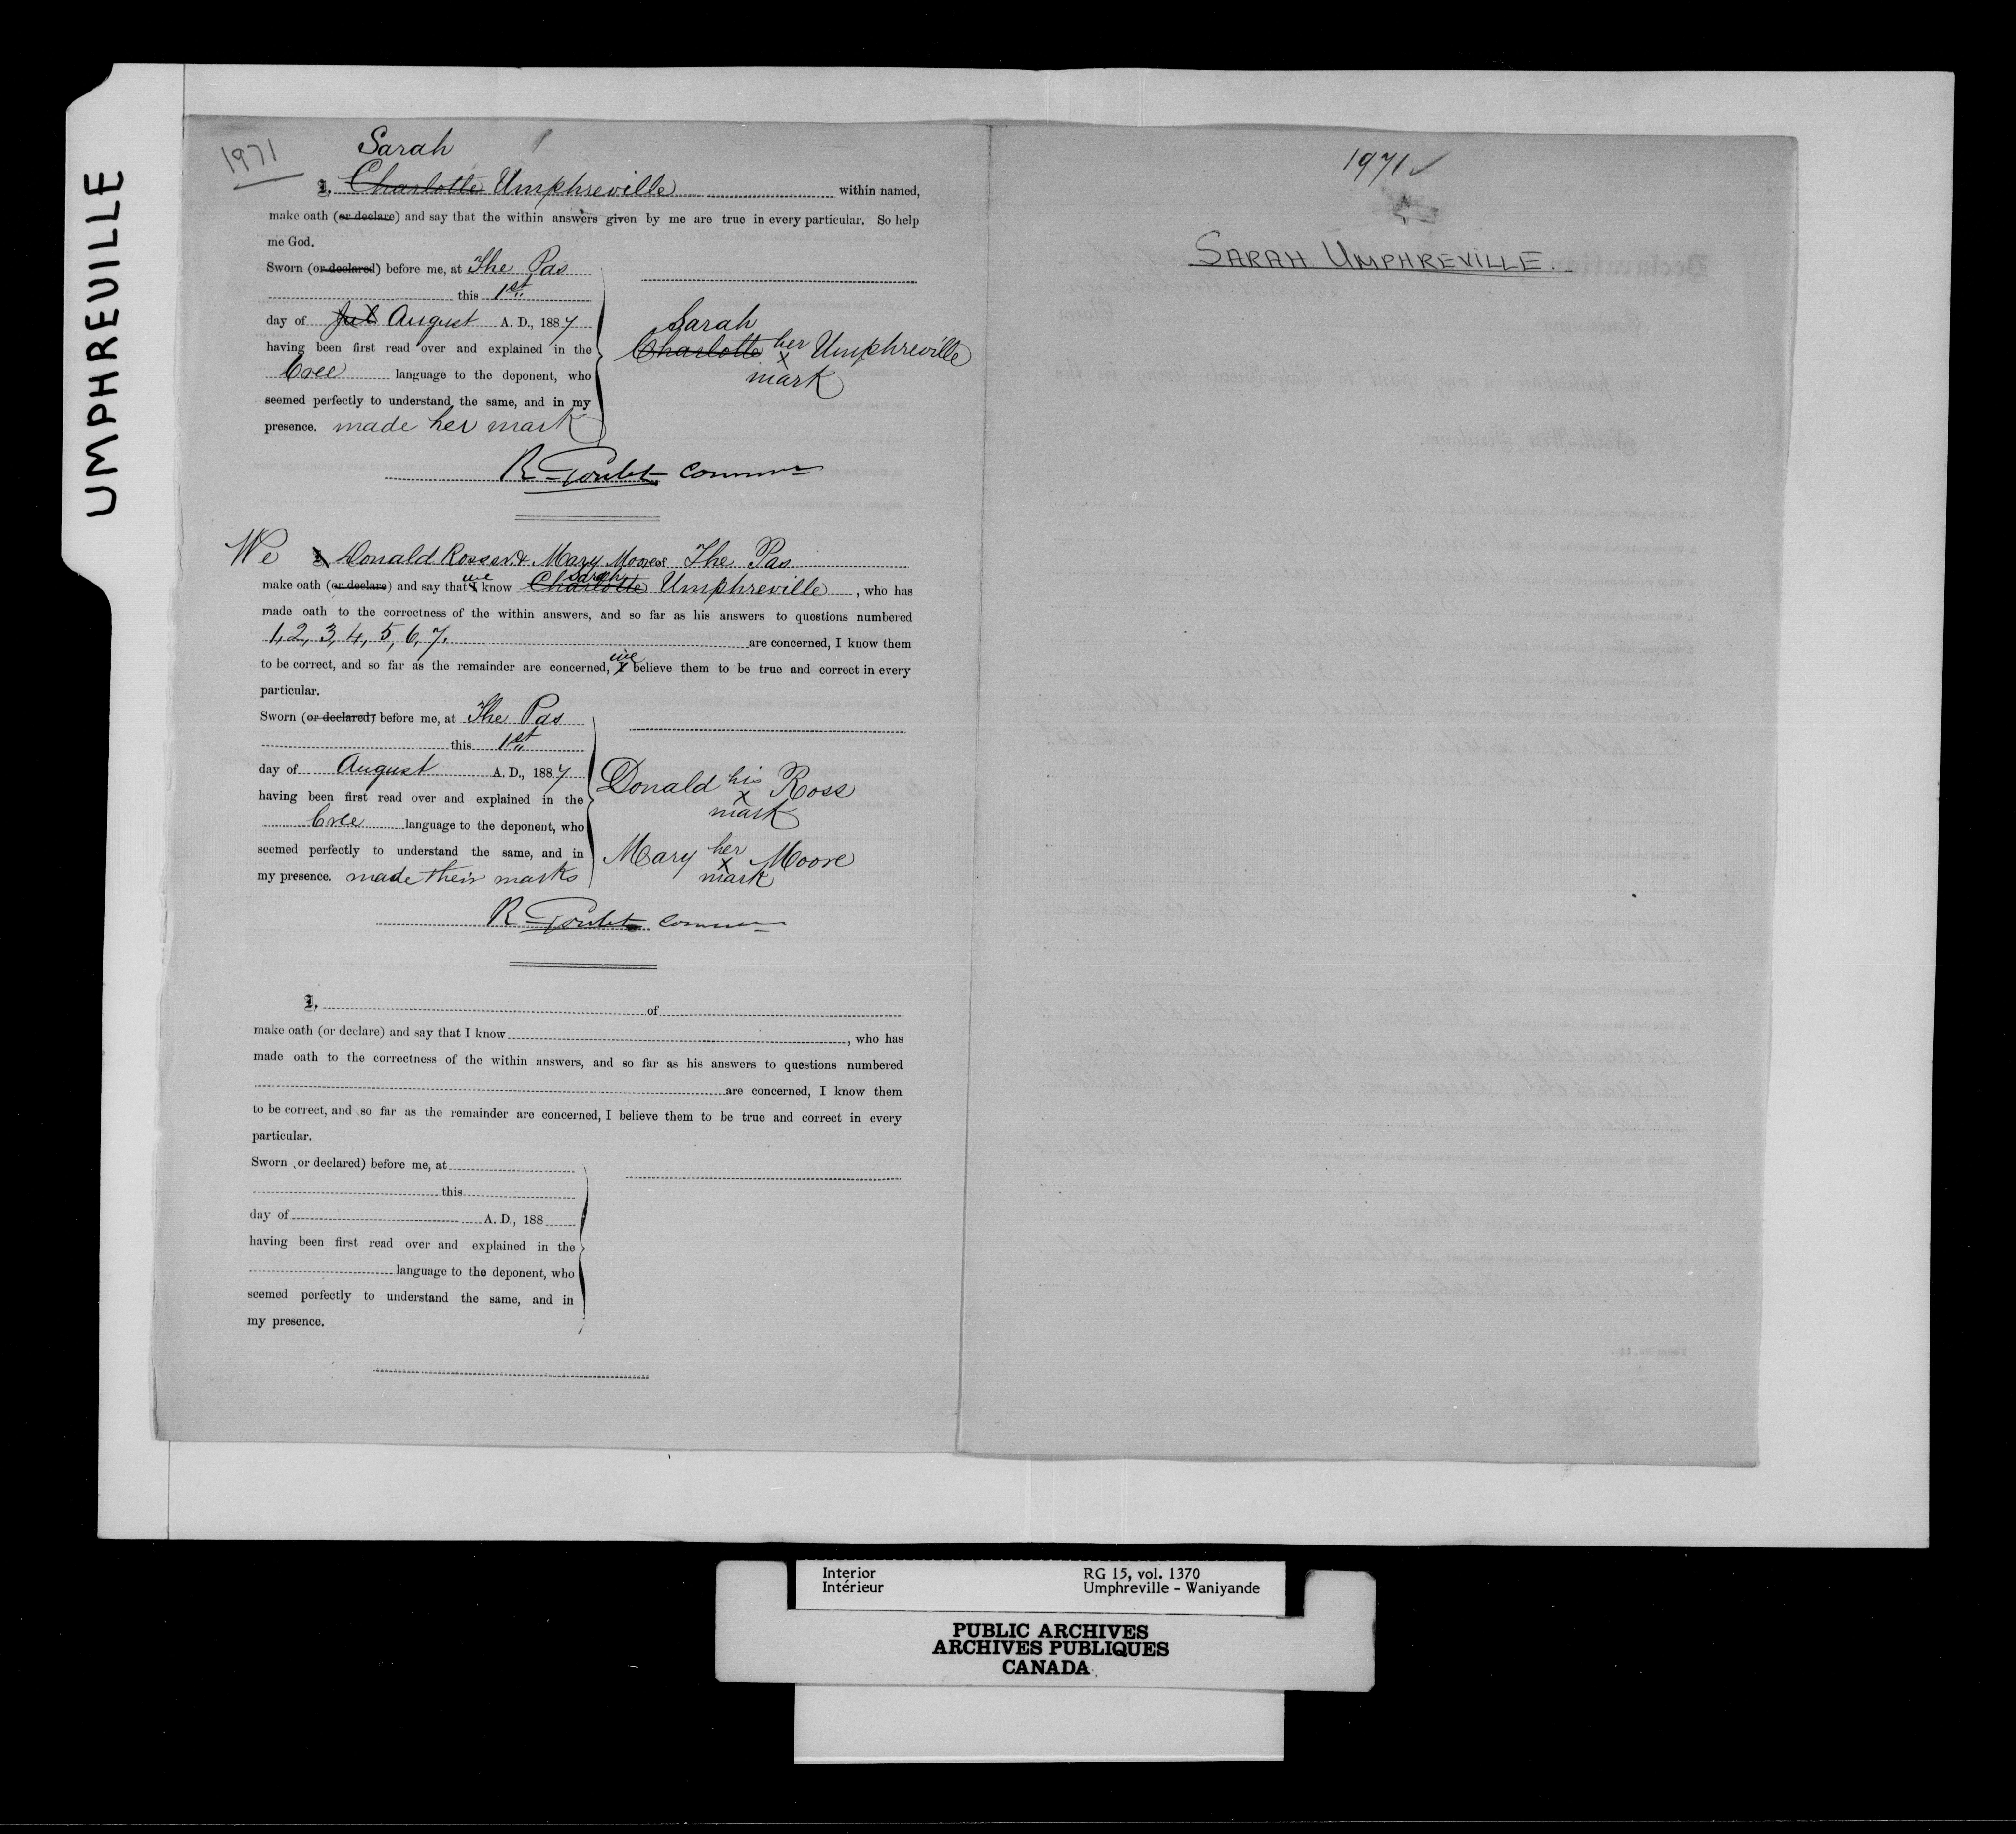 UMPHREVILLE
1971
Sarah
I, Charlotte Umphreville within named,
make oath (or declare) and say that the within answers given by me are true in every particular. So help
me God.
Sworn (or declared) before me, at The Pas
this 1st
day of Jul August A. D., 1887
having been first read over and explained in the
Cree language to the deponent, who
seemed perfectly to understand the same, and in my
presence. made her mark
Sarah
Charlotte her Umphreville
x
mark
R Goulet Commr
We I Donald Ross and Mary Moore of The Pas
make oath (or declare) and say that I we know Charlotte Sarah Umphreville, who has
made oath to the correctness of the within answers, and so far as his answers to questions numbered
1, 2, 3, 4, 5, 6, 7. are concerned, I know them
to be correct, and so far as the remainder are concerned, I we believe them to be true and correct in every
particular.
Sworn (or declared) before me, at The Pas
this 1st
day of August A. D., 1887
having been first read over and explained in the
Cree language to the deponent, who
seemed perfectly to understand the same, and in
my presence. made their marks
Donald his Ross
x
mark
Mary her Moore
x
mark
R Goulet Commr
I, of
make oath (or declare) and say that I know , who has
made oath to the correctness of the within answers, and so far as his answers to questions numbered
are concerned, I know them
to be correct, and so far as the remainder are concerned, I believe them to be true and correct in every
particular.
Sworn (or declared) before me, at
this
day of A. D., 188
having been first read over and explained in the
language to the deponent, who
seemed perfectly to understand the same, and in
my presence.
1971 ✓
SARAH UMPHREVILLE.
Interior RG 15, vol. 1370
Intérieur Umphreville - Waniyande
PUBLIC ARCHIVES
ARCHIVES PUBLIQUES
CANADA